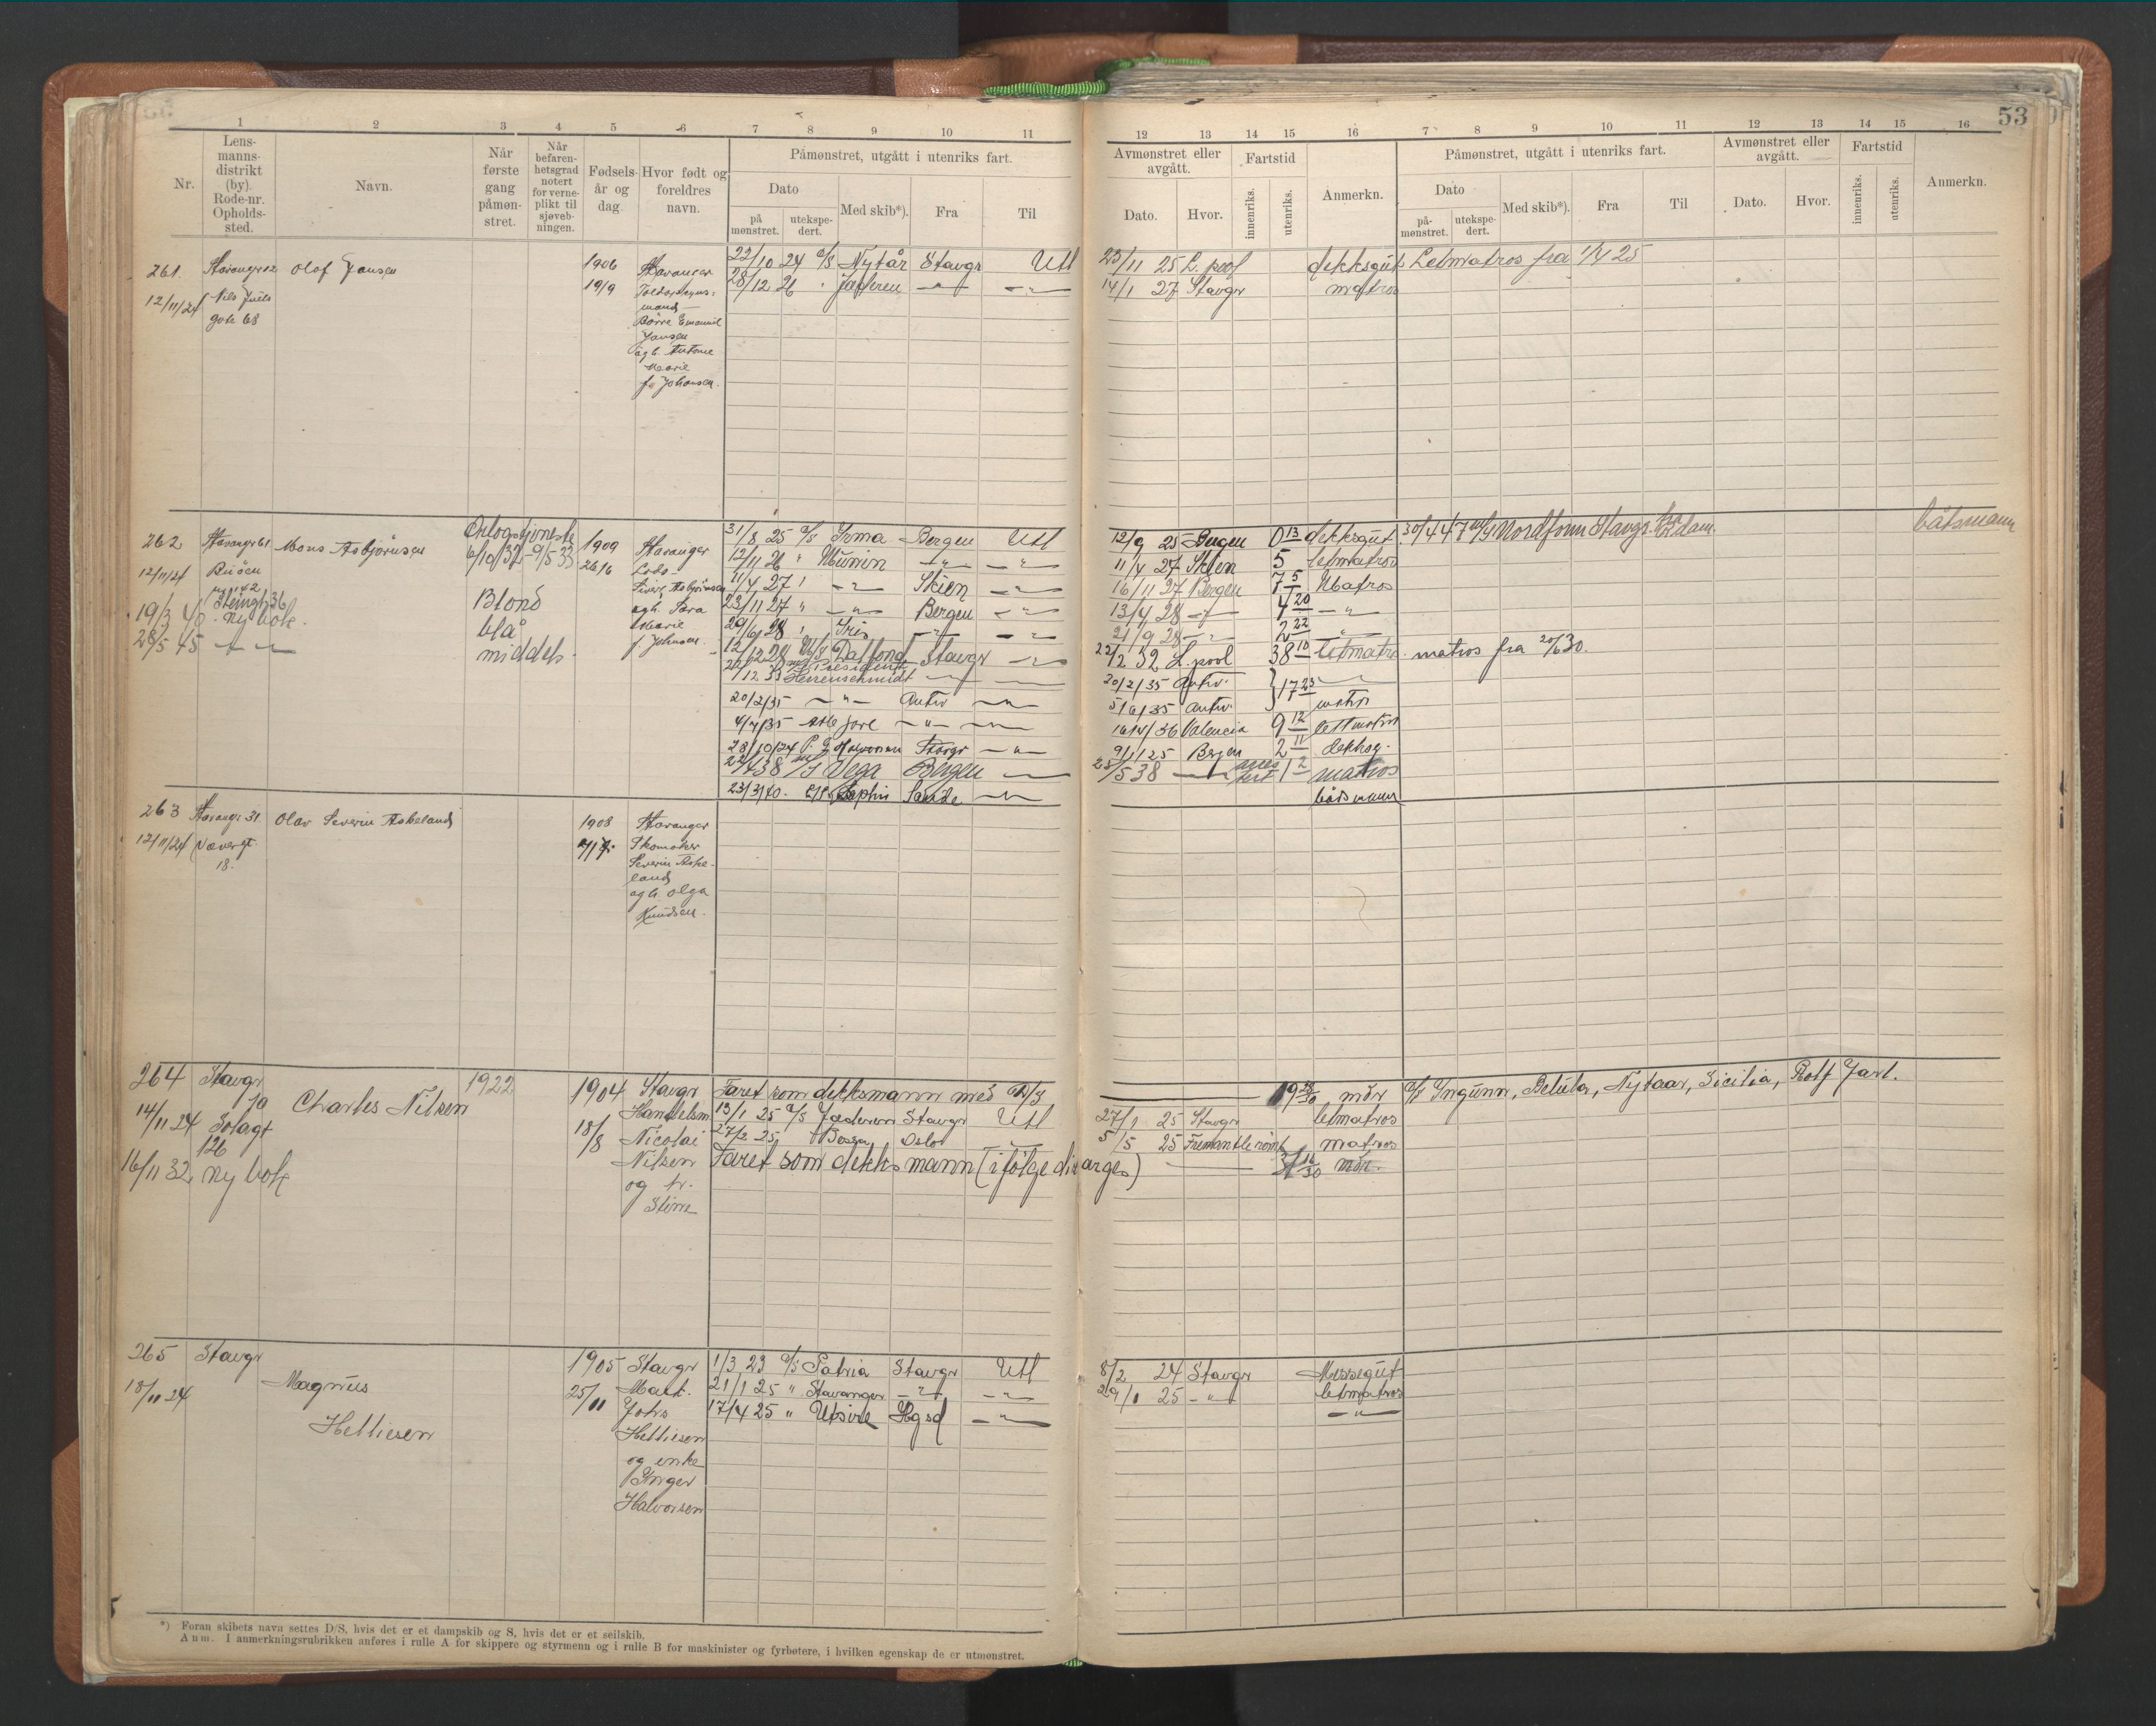 53
1 2 3 4 5 6 7 8 9 10 11
12 13 14 15 16 7 8 9 10 11 12 13 14 15 16
Nr.
Lens-
manns-
distrikt
(by).
Rode-nr.
Opholds-
sted.
Navn.
Når
første
gang
påmøn-
stret.
Når
befaren-
hetsgrad
notert
for verne-
plikt til
sjøveb-
ningen.
Fødsels-
år og
dag.
Hvor født og
foreldres
navn.
Påmønstret, utgått i utenriks fart.
Dato
på
mønstret.
utekspe-
dert.
Med skib*).
Fra
Til
Avmønstret eller
avgått.
Dato.
Hvor.
Fartstid
innenriks.
utenriks.
Anmerkn.
Påmønstret, utgått i utenriks fart.
Dato
på-
mønstret.
utekspe-
dert.
Med skib*).
Fra
Til
Avmønstret eller
avgått.
Dato.
Hvor.
Fartstid
innenriks.
utenriks.
Anmerkn.
261.
12/11/24
Nils Juels
gate 68
Olaf Jansen
1906
19/9
Stavanger
Børre Emanuel
Jansen
Marie
f. Johansen.
22/10 24 D/S Nytår Stavgr Utl
28/12 26 " Jæderen — " — — " —
23/11 25 L. pool dekksgut Letmatros fra 1/4 25
14/1 27 Stavgr matros
262
12/11/24
Buøen
19/3 40. Ny bok.
28/5 45 — " —
Mons Asbjørnsen
Orlogstjeneste
6/10/32 - 9/5 33
Blond
blå
middels.
1909
26/6
Stavanger
Lods
Sivert Asbjørnsen
og h. Sara
Marie
f. Johnsen.
31/8 25 D/S Irma Bergen Utl
12/11 26 " Munin — " — — " —
11/4 27 " — " — Skien — " —
23/11 27 " — " — Bergen — " —
29/6 28 " Iris — " — — " —
12/12 28 M/S Dalfonn Stavgr — " —
President
Herrenschmidt
20/2/35 — " — Antw — " —
4/7/35 Atle Jarl — " — — " —
28/10/24 P. G. Halvorsen Stavgr — " —
22/4 38 M/S Vega Bergen —
23/3/40. Sande — " —
12/9 25 Bergen 0 13 dekksgut
11/4 27 Skien 5 letmatros
16/11 27 Bergen 7 5 Matros
13/4 28 — " — 4 20 — " —
21/9 28 — " — 2 22 "
22/12 32 L. pool 38 10 letmatr. matros fra 20/6 30.
20/2/35 Antw. 17 23
5/6/35 Antw. matr
16/4/36 Valencia 9 12 lettmatros
9/1/25 Bergen 2 11 dekksg.
25/5 38 1 2 matros
båtsmann
30/4 47 M/S Nordfonn Stavgr. båtsmann
263
12/11/24
18.
Olav Severin Askeland
1908
Stavanger
Skomaker
Severin Aske-
land
og h. Olga
Knudsen.
264
14/11 24
16/11 32, ny bok
Stavgr
10
Solagt
126
Charles Nilsen
1922
1904
18/8
Stavgr
Handelsm
Nicolai
Nilsen
og h.
Stine
Faret som dekksmann med D/S
13/1 25 D/S Jæderen Stavgr Utl
27/2 25, Oslo
Faret som dekksmann (ifølge disarges)
19 28/30 mdr D/S Ingunn, Betula, Nytaar, Sicilia, Rolf Jarl.
27/1 25 Stavgr letmatros
5/5 25 Fremantle rømt matros
mdr.
265
18/11 24
Stavgr
Magnus
Helliesen
1905
25/11
Stavgr
Mask.
Johs
Helliesen
og enke
Inger
Halvorsen
1/3 23 D/S Patria Stavgr Utl
21/1 25 " Stavanger — " — — " —
17/4 25 " Utsire Hgsd — " —
8/2 24 Stavgr Messegut
29/1 25 — " — letmatros
— " —
*) Foran skibets navn settes D/S, hvis det er et dampskib og S, hvis det er et seilskib.
Anm. I anmerkningsrubrikken anføres i rulle A for skippere og styrmenn og i rulle B for maskinister og fyrbøtere, i hvilken egenskap de er utmønstret.